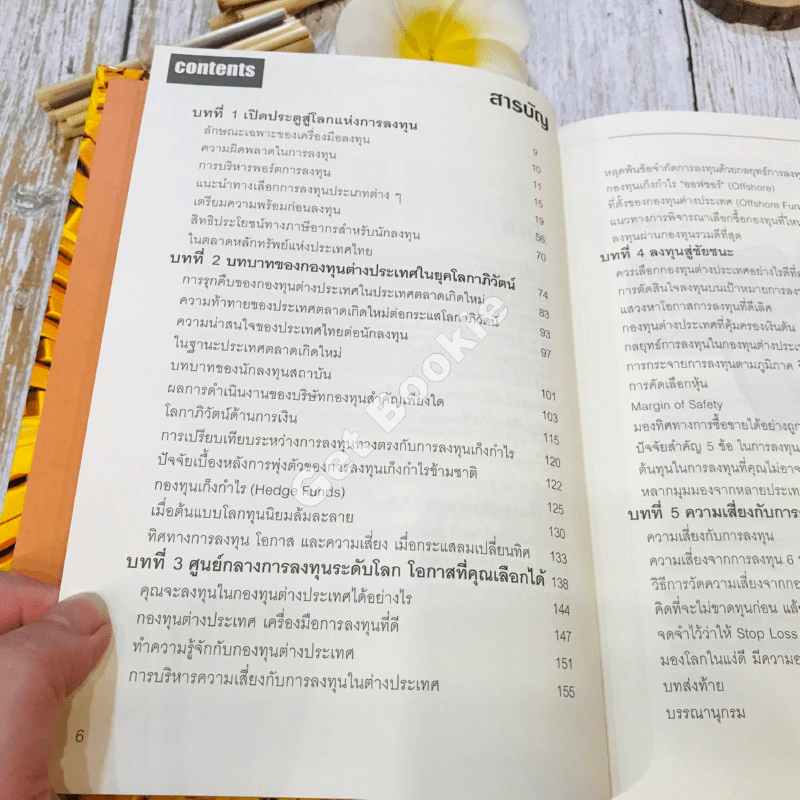 contents
สารบัญ
บทที่ 1 เปิดประตูสู่โลกแห่งการลงทุน 9
ลักษณะเฉพาะของเครื่องมือลงทุน 10
ความผิดพลาดในการลงทุน 11
การบริหารพอร์ตการลงทุน 15
แนะนำทางเลือกการลงทุนประเภทต่าง ๆ 19
เตรียมความพร้อมก่อนลงทุน 56
สิทธิประโยชน์ทางภาษีอากรสำหรับนักลงทุน 70
ในตลาดหลักทรัพย์แห่งประเทศไทย
บทที่ 2 บทบาทของกองทุนต่างประเทศในยุคโลกาภิวัตน์ 74
การรุกคืบของกองทุนต่างประเทศในประเทศตลาดเกิดใหม่ 83
ความท้าทายของประเทศตลาดเกิดใหม่ต่อกระแสโลกาภิวัตน์ 93
ความน่าสนใจของประเทศไทยต่อนักลงทุน 97
ในฐานะประเทศตลาดเกิดใหม่
บทบาทของนักลงทุนสถาบัน 101
ผลการดำเนินงานของบริษัทกองทุนสำคัญเพียงใด 103
โลกาภิวัตน์ด้านการเงิน 115
การเปรียบเทียบระหว่างการลงทุนทางตรงกับการลงทุนเก็งกำไร 120
ปัจจัยเบื้องหลังการพุ่งตัวของการลงทุนเก็งกำไรข้ามชาติ 122
กองทุนเก็งกำไร (Hedge Funds) 125
เมื่อต้นแบบโลกทุนนิยมล้มละลาย 130
ทิศทางการลงทุน โอกาส และความเสี่ยง เมื่อกระแสลมเปลี่ยนทิศ 133
บทที่ 3 ศูนย์กลางการลงทุนระดับโลก โอกาสที่คุณเลือกได้ 138
คุณจะลงทุนในกองทุนต่างประเทศได้อย่างไร 144
กองทุนต่างประเทศ เครื่องมือการลงทุนที่ดี 147
ทำความรู้จักกับกองทุนต่างประเทศ 151
การบริหารความเสี่ยงกับการลงทุนในต่างประเทศ 155
6
Get Bookie
หลุดพ้นข้อจำกัดการลงทุนด้วยกลยุทธ์การลงทุ
กองทุนเก็งกำไร "ออฟชอร์" (Offshore)
ที่ตั้งของกองทุนต่างประเทศ (Offshore Fun
แนวทางการพิจารณาเลือกซื้อกองทุนที่ไหน
ลงทุนผ่านกองทุนรวมดีที่สุด
บทที่ 4 ลงทุนสู่ชัยชนะ
ควรเลือกกองทุนต่างประเทศอย่างไรดีที่
การตัดสินใจลงทุนบนเป้าหมายการลง
แสวงหาโอกาสการลงทุนที่ดีเลิศ
กองทุนต่างประเทศที่คุ้มครองเงินต้น
กลยุทธ์การลงทุนในกองทุนต่างประเ
การกระจายการลงทุนตามภูมิภาค
การคัดเลือกหุ้น
Margin of Safety
มองทิศทางการซื้อขายได้อย่างถูก
ปัจจัยสำคัญ 5 ข้อ ในการลงทุน
ต้นทุนในการลงทุนที่คุณไม่อาจ
หลากมุมมองจากหลายประเท
บทที่ 5 ความเสี่ยงกับการ
ความเสี่ยงกับการลงทุน
ความเสี่ยงจากการลงทุน 6
วิธีการวัดความเสี่ยงจากกอ
คิดที่จะไม่ขาดทุนก่อน แล้
จดจำไว้ว่าให้ Stop Loss
มองโลกในแง่ดี มีความอ
บทส่งท้าย
บรรณานุกรม